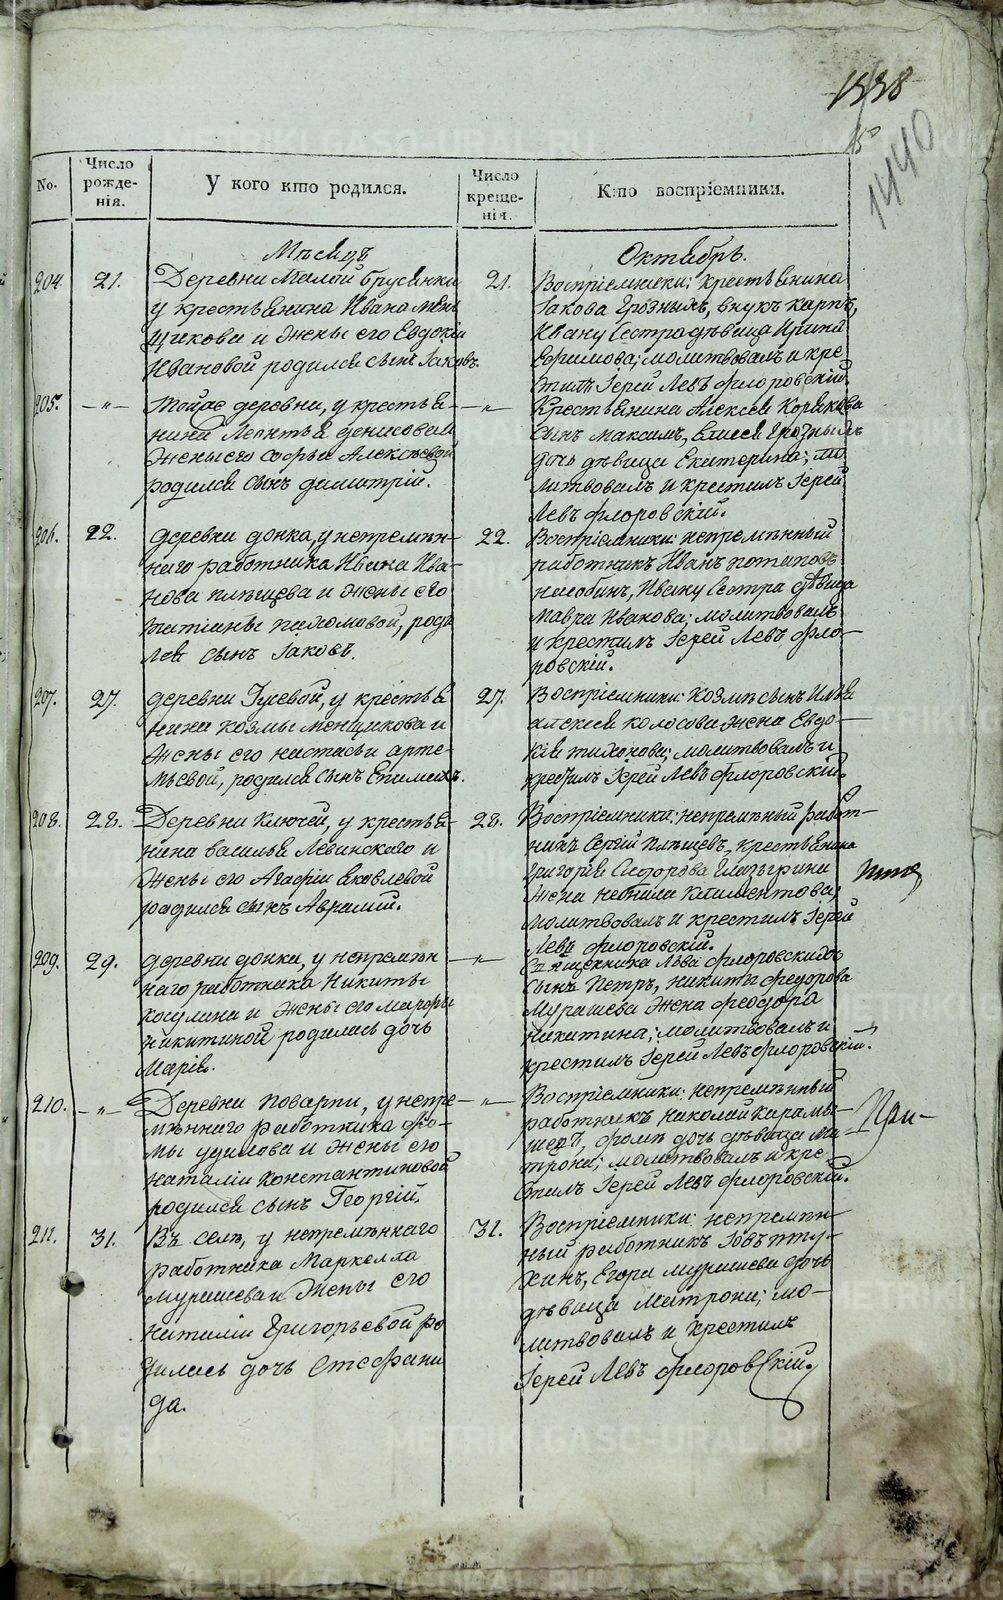 1338
1440
No.
Число рожде-нія.
У кого кто родился.
Число креще-нія.
Кто воспріемники.
Мѣсяцъ
Октябрь.
204.
21.
Деревни Малой Брусянки
у крестьянина Ивана Мень
щикова и жены его Евдокіи
Ивановой родился сынъ Іаковъ.
21.
Воспріемники: крестьянина
Іакова Грозныхъ, внукъ Карпъ,
Ивану сестра дѣвица Ирина
Ефимова; молитвовалъ и кре
стилъ Іерей Левъ Флоровскій.
205.
—"—
Той же деревни, у крестья
нина Леонтья Денисова и
жены его Софьи Алексѣевой
родился сынъ Димитрій.
—"—
Крестьянина Алексея Корякова
сынъ Максимъ, Грозныхъ
дочь дѣвица Екатерина; мо
литвовалъ и крестилъ Іерей
Левъ Флоровскій.
206.
22.
Деревни Донка, у непремѣн-
наго работника Ивана Ива-
нова Плѣшева и жены его
Татіаны Пахомовой, роди
лся сынъ Іаковъ.
22.
Воспріемники: непремѣнный
работникъ Иванъ Потаповъ
Ивану сестра дѣвица
Мавра Иванова; молитвовалъ
и крестилъ Іерей Левъ Фло-
ровскій.
207.
27.
Деревни Гусевой, у крестья
нина Козмы Менщикова и
жены его Настасьи Арте-
мьевой, родился сынъ Епимахъ.
27.
Воспріемники: Козмѣ сынъ Илья
Алексея Колосова жена Евдо-
кія Тихонова; молитвовалъ и
крестилъ Іерей Левъ Флоровскій.
208.
28.
Деревни Ключей, у крестья-
нина Василья Левинского и
жены его Агафіи Яковлевой
родился сынъ Аврамій.
28.
Воспріемники: непремѣнный работ-
никъ Сергій Плѣшевъ, крестьянина
Григорья Сидорова Глазырина
жена Неонила Климентова;
молитвовалъ и крестилъ Іерей
Левъ Флоровскій.
209.
29.
Деревни Донки, у непремѣн
наго работника Никиты
Косулина и жены его Марфы
Никитиной родилась дочь
Марія.
—"—
Священника Льва Флоровскидов
сынъ Петръ, Никиты Федорова
Мурашева жена Феодора
Никитина; молитвовалъ и
крестилъ Іерей Левъ Флоровскій.
210.
—"—
Деревни Поварни, у непре
мѣннаго работника Фо-
мы Удилова и жены его
Наталіи Константиновой
родился сынъ Георгій.
—"—
Воспріемники: непремѣнный
работникъ Николай Карамы-
шевъ, Фомѣ дочь дѣвица Ма
трона; молитвовалъ и кре
стилъ Іерей Левъ Флоровскій.
При-
211.
31.
Въ селѣ, у непремѣннаго
работника Маркелла
Мурашева и жены его
Наталіи Григорьевой ро
дилась дочь Стефани
да.
31.
Воспріемники: непремѣн-
ный работникъ Іовъ Пту-
хинъ, Егора Мурашева дочь
дѣвица Матрона; мо-
литвовалъ и крестилъ
Іерей Левъ Флоровскій.
METRIKI.GASO-URAL.RU